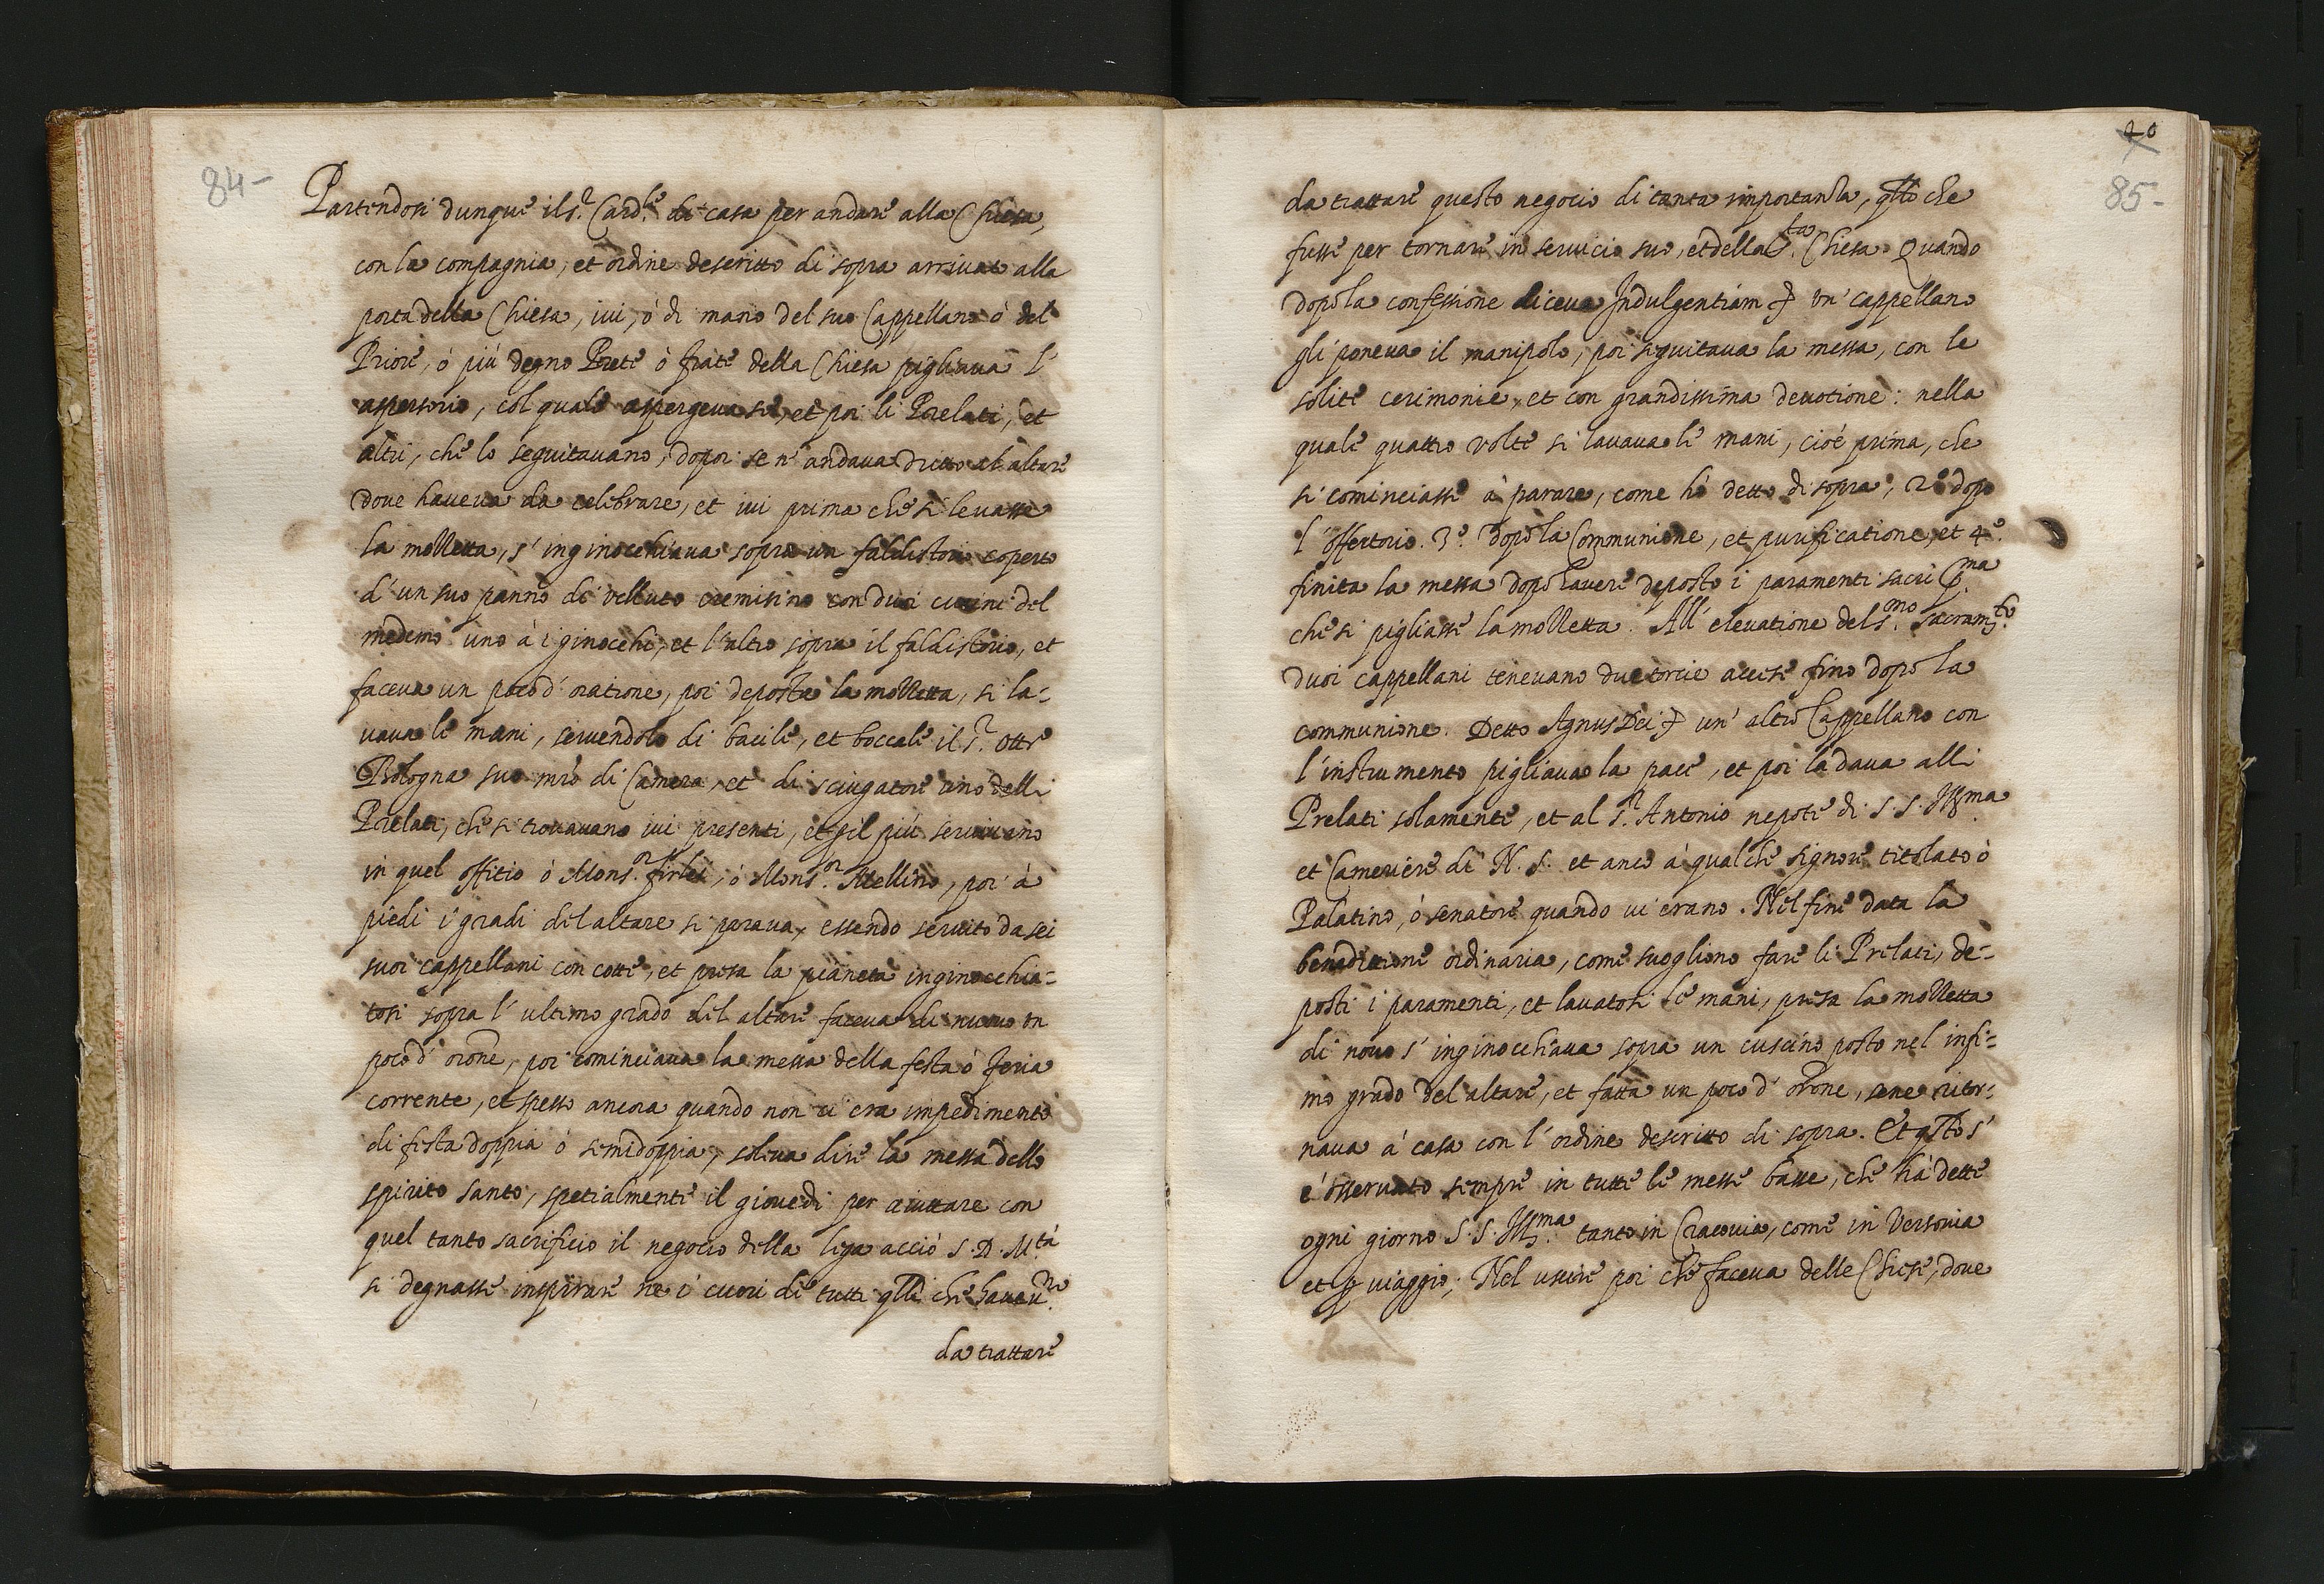 84-
Partendosi dunque il s.r Card.le di casa per andare alla Chiesa,
con la compagnia, et ordine descritto di sopra arrivato alla
porta della Chiesa, ivi, ò di mano del suo Cappellano ò del
Priore, ò più degno Prete ò frate della Chiesa pigliava l'
aspersorio, col quale aspergeva se, et poi li Prelati, et
altri, che lo seguitavano, dopoi se n'andava dritto al altare
dove haveva da celebrare, et ivi prima che si levasse
la mozzetta, s'inginocchiava sopra un faldistorio coperto
d'un suo panno di velluto cremisino con duoi cusini del
medemo uno à i ginocchi, et l'altro sopra il faldistorio, et
faceva un poco d'oratione, poi deposta la mozzetta, si la-
vava le mani, servendolo di bacile, et boccale il s.r Ott.e
Bologna suo mrò di Camera, et di sciugatore uno delli
Prelati, che si trovavano ivi presenti, et il più servivano
in quel offitio ò Mons.r firlei, ò Mons.r Mellino, poi à
piedi i gradi del altare si parava, essendo servito da sei
suoi cappellani con cotte, et presa la pianeta inginocchia-
tosi sopra l'ultimo grado del altare faceva di nuovo un
poco d'orōne, poi cominciava la messa della festa ò feria
corrente, et spesso ancora quando non vi era impedimento
di festa doppia ò semidoppia, soleva dire la messa dello
spirito santo, spetialmente il giovedi per aiuttare con
quel tanto sacrificio il negocio della liga acciò S. D. M.tà
si degnasse inspirare ne i cuori di tutti qlli che haveu.no
da trattare
20
85-
da trattare questo negocio di tanta importanza, qllo che
fusse per tornare in servicio suo, et della s.ta Chiesa. Quando
dopò la confessione diceva Indulgentiam & un' cappellano
gli poneva il manipolo, poi seguitava la messa, con le
solite cerimonie, et con grandissima devotione: nella
quale quattro volte si lavava le mani, cioè prima, che
si cominciasse à parare, come hò detto di sopra, 2.o dopo
l'offertorio. 3.o dopò la Communione, et purificatione, et 4.o
finita la messa dopò havere deposto i paramenti sacri p.ma
che si pigliasse la mozzetta. All' elevatione del s.mo sacram.to
duoi cappellani tenevano due torcie accese fino dopò la
communione. Detto Agnus Dei & un' altro Cappellano con
l'instrumento pigliava la pace, et poi la dava alli
Prelati solamente, et al s.r Antonio nepote di S. S. Ill.ma
et Cameriere di N. S. et anco à qualche signore titolato ò
Palatino, ò senatore quando vi erano. Nel fine data la
benedittione ordinaria, come sogliono fare li Prelati, de-
posti i paramenti, et lavatosi le mani, presa la mozzetta
di novo s'inginocchiava sopra un cuscino posto nel infi-
mo grado del altare, et fatta un poco d'orōne, sene ritor-
nava à casa con l'ordine descritto di sopra. Et qllo s'
è osservato sempre in tutte le messe basse, che hà dette
ogni giorno S. S. Ill.ma tanto in Cracovia, come in Versovia
et p viaggio; Nel uscire poi che faceva delle Chiese, dove